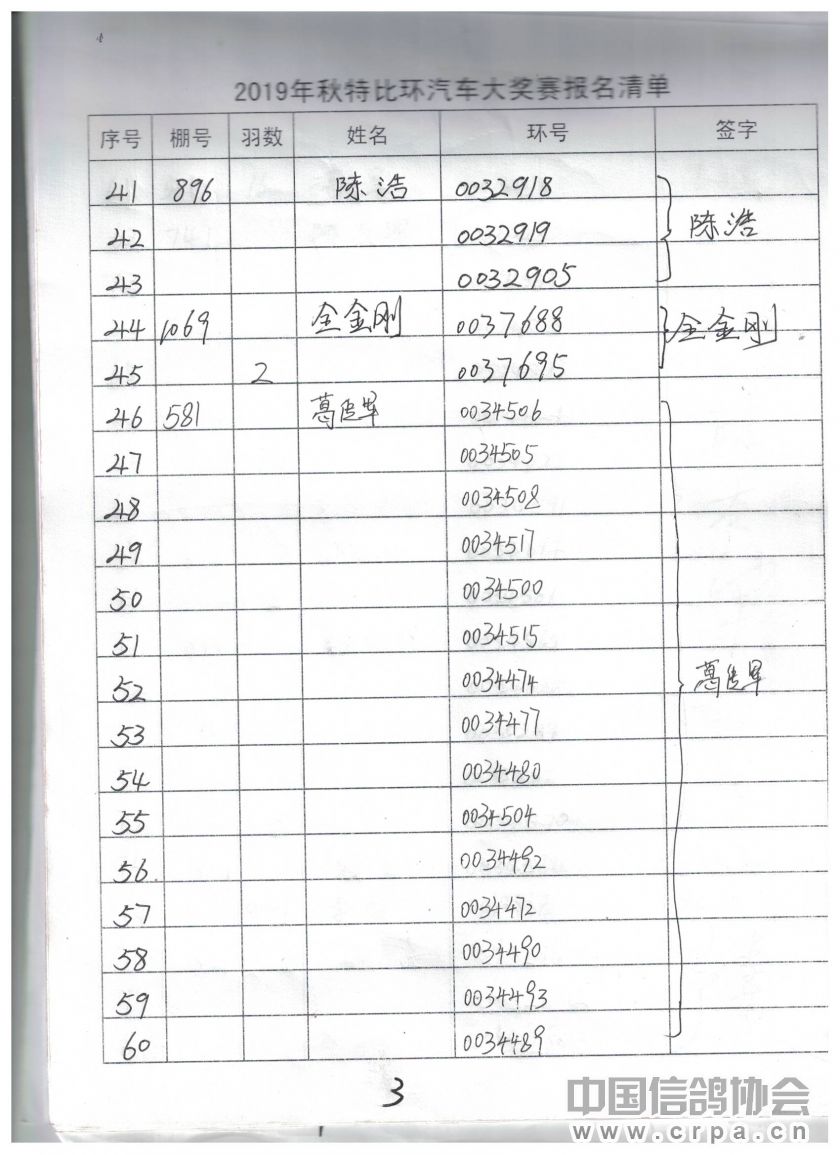 2019年秋特比环汽车大奖赛报名清单
序号 棚号 羽数 姓名 环号 签字
41 896 陈浩 0032918
42 0032919 陈浩
43 0032905
44 1069 全金刚 0037688 全金刚
45 2 0037695
46 581 葛 0034506
47 0034505
48 0034508
49 0034517
50 0034500
51 0034515
52 0034474 葛
53 0034477
54 0034480
55 0034504
56 0034492
57 0034472
58 0034490
59 0034493
60 0034489
3
中国信鸽协会
www.crpa.cn